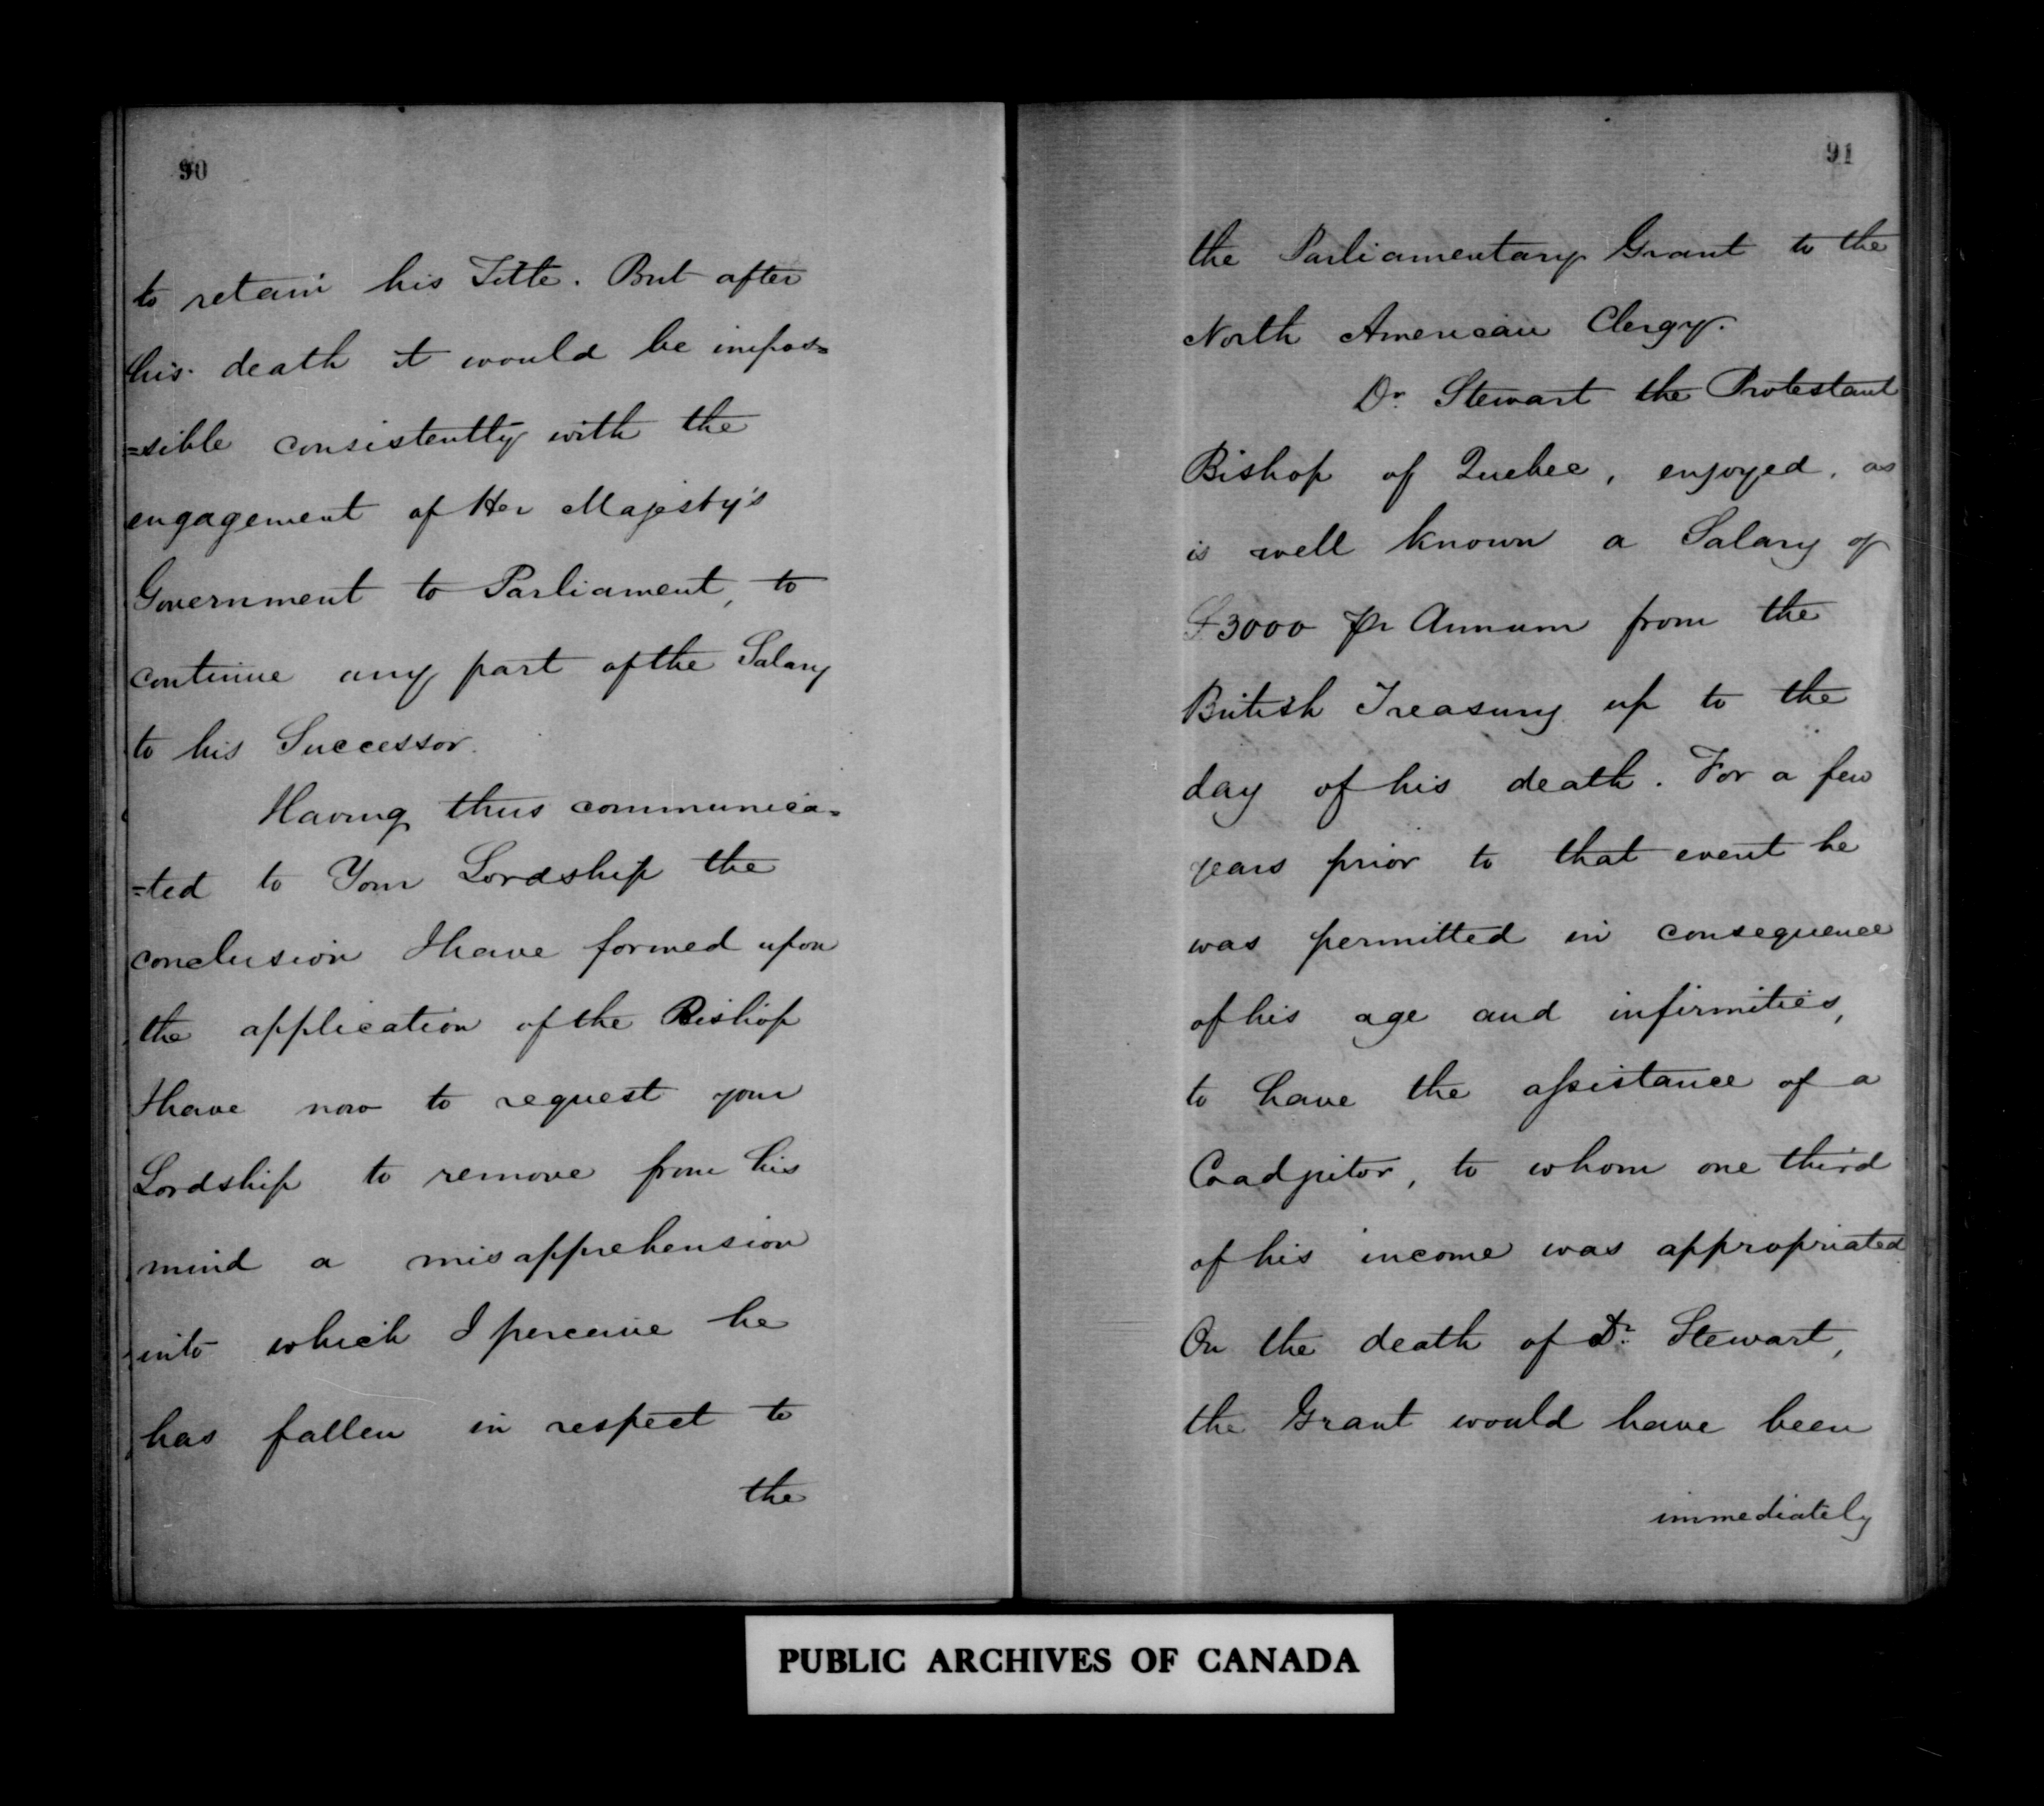 90
to retain his Title. But after
his death it would be impos=
=sible consistently with the
engagement of Her Majesty's
Government to Parliament, to
continue any part of the Salary
to his Successor.
Having thus communica=
=ted to Your Lordship the
conclusion I have formed upon
the application of the Bishop
I have now to request your
Lordship to remove from his
mind a misapprehension
into which I perceive he
has fallen in respect to
the
91
the Parliamentary Grant to the
North American Clergy.
Dr. Stewart the Protestant
Bishop of Quebec, enjoyed, as
is well known a Salary of
£3000 pr Annum from the
British Treasury up to the
day of his death. For a few
years prior to that event he
was permitted in consequence
of his age and infirmities,
to have the assistance of a
Coadjutor, to whom one third
of his income was appropriated
On the death of Dr. Stewart,
the Grant would have been
immediately
PUBLIC ARCHIVES OF CANADA